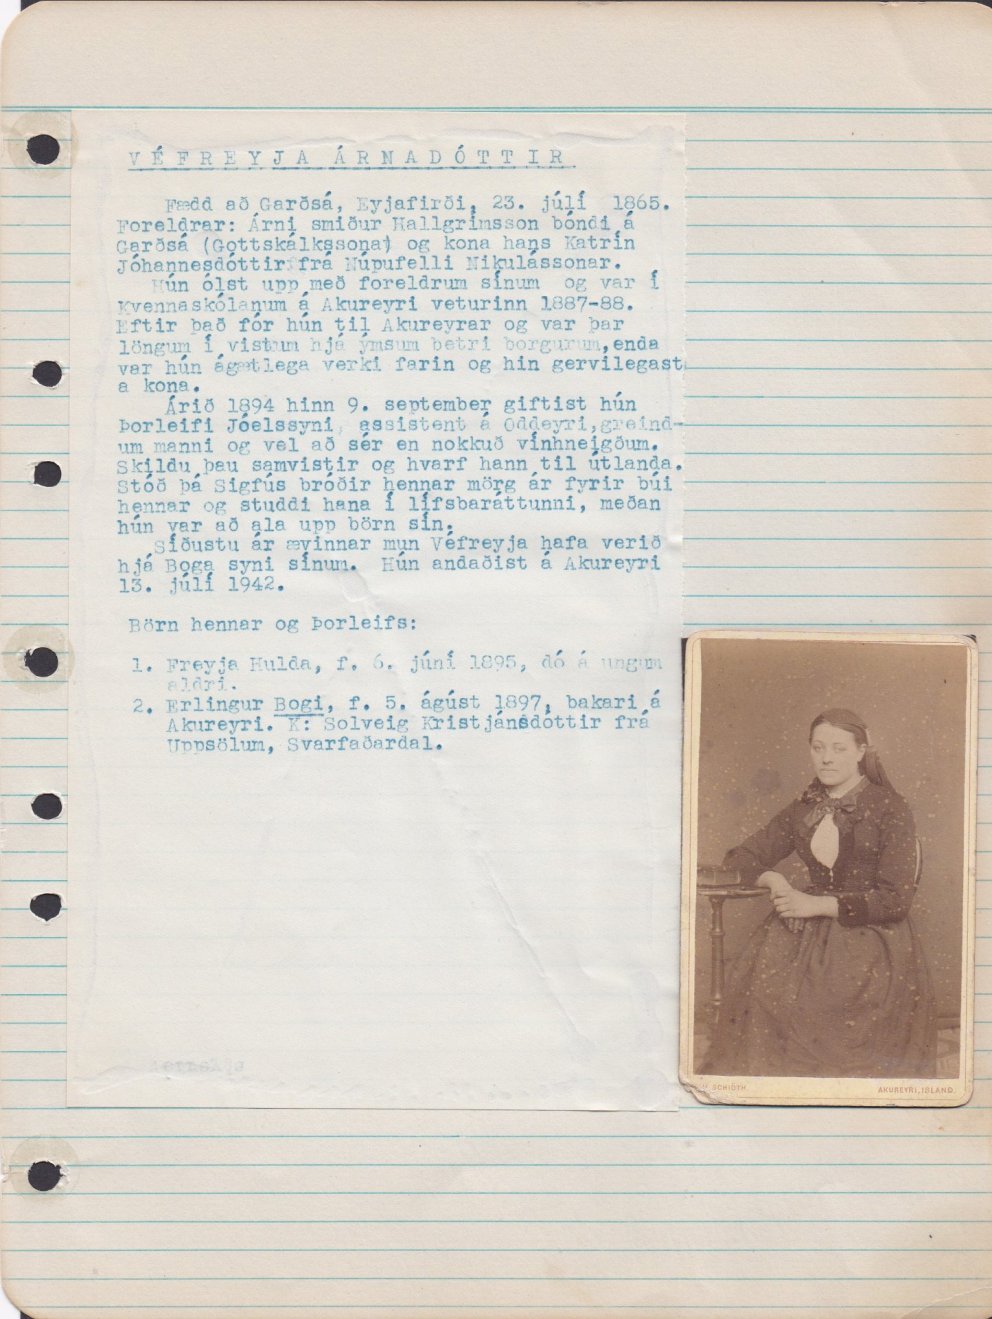 VÉFREYJA ÁRNADÓTTIR
Fædd að Garðsá, Eyjafirði, 23. júlí 1865.
Foreldrar: Árni smiður Hallgrímsson bóndi á
Garðsá (Gottskálkssona) og kona hans Katrín
Jóhannesdóttir frá Núpufelli Nikulássonar.
Hún ólst upp með foreldrum sínum og var í
Kvennaskólanum á Akureyri veturinn 1887-88.
Eftir það fór hún til Akureyrar og var þar
löngum í vistum hjá ýmsum betri borgurum, enda
var hún ágætlega verki farin og hin gervilegast
a kona.
Árið 1894 hinn 9. september giftist hún
Þorleifi Jóelssyni, assistent á Oddeyri, greind-
um manni og vel að sér en nokkuð vínhneigðum.
Skildu þau samvistir og hvarf hann til útlanda.
Stóð þá Sigfús bróðir hennar mörg ár fyrir búi
hennar og studdi hana í lífsbaráttunni, meðan
hún var að ala upp börn sín.
Síðustu ár ævinnar mun Véfreyja hafa verið
hjá Boga syni sínum. Hún andaðist á Akureyri
13. júlí 1942.
Börn hennar og Þorleifs:
1. Freyja Hulda, f. 6. júní 1895, dó á ungum
aldri.
2. Erlingur Bogi, f. 5. ágúst 1897, bakari á
Akureyri. K: Solveig Kristjánsdóttir frá
Uppsölum, Svarfaðardal.
SCHIÖTH
AKUREYRI, ISLAND.